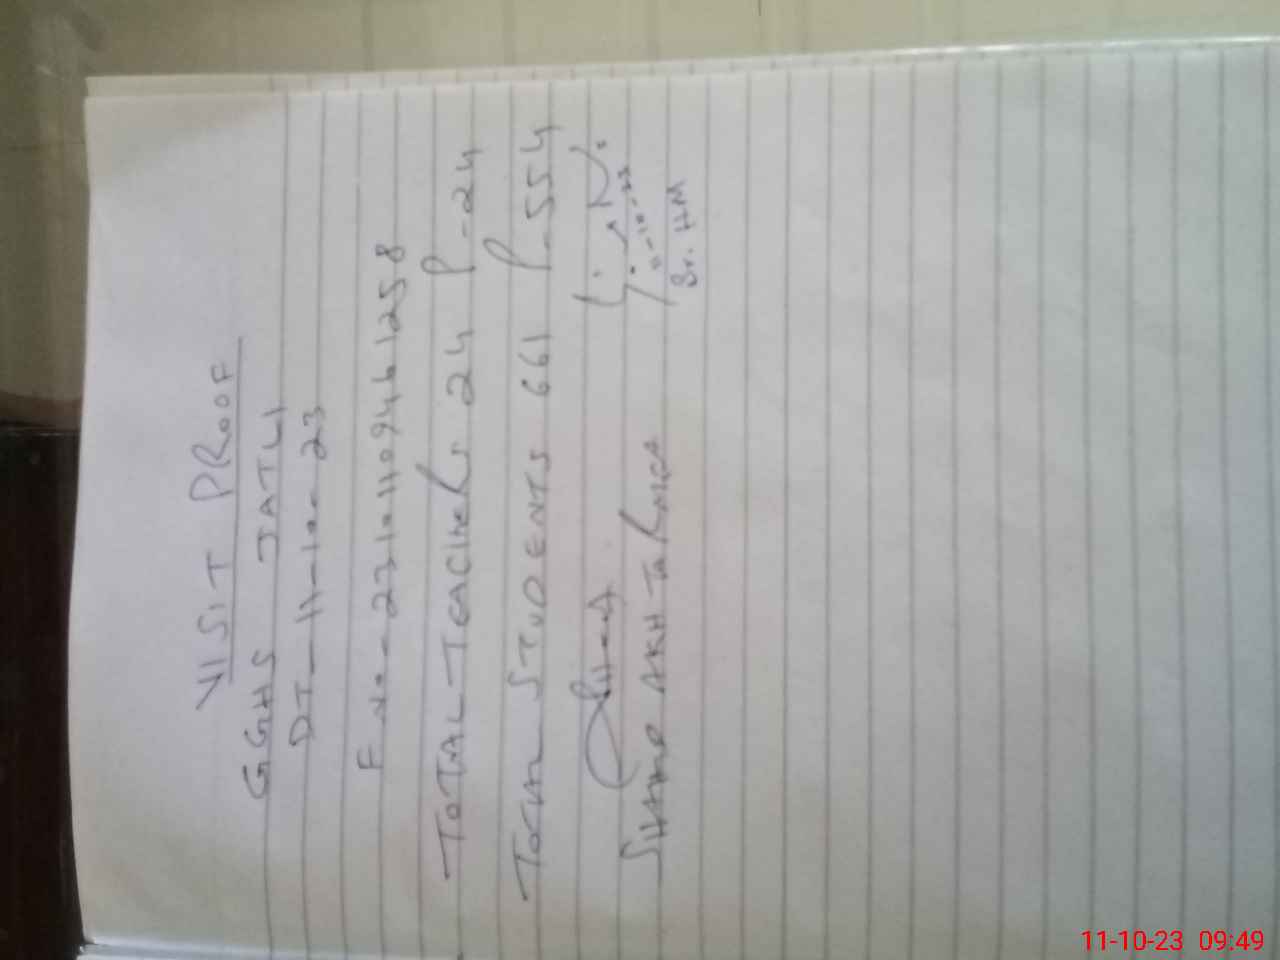 VISIT PROOF
GGHS JATLI
DT-11-10-23
F No-23101109461258
TOTAL-TEACHERS 24 P-24
TOTAL STUDENTS 661 P-554
11-10-23
Sr. HM
11-10-23 09:49